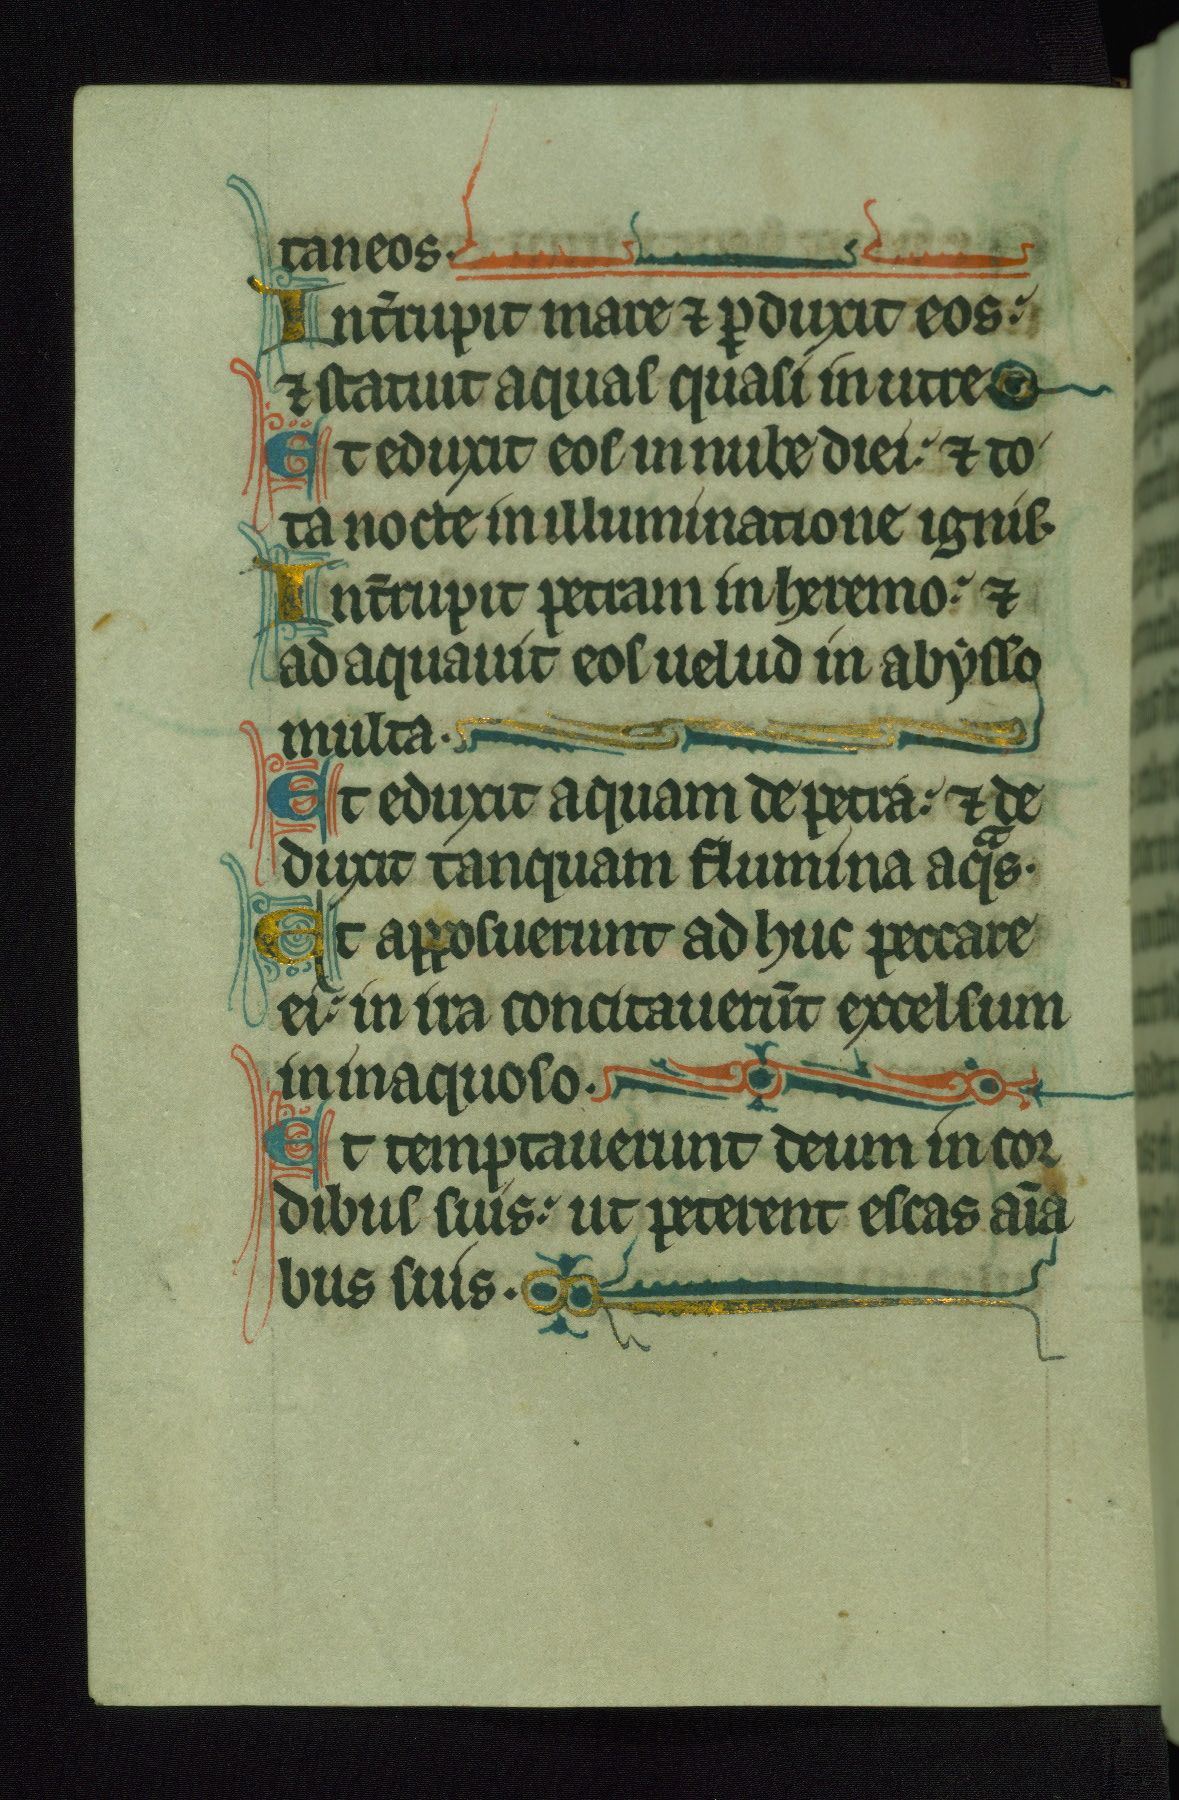 taneos.
Int̄rupit mare ⁊ ꝑduxit eos:
⁊ statuit aquas quasi in utre
Et eduxit eos in nube diei: ⁊ to
ta nocte in illuminatione ignis.
Int̄rupit petram in heremo: ⁊
adaquauit eos uelud in abysso
multa.
Et eduxit aquam de petra: ⁊ de
duxit tanquam flumina aqͣs.
Et apposuerunt adhuc peccare
ei: in ira concitauerūt excelsum
in inaquoso.
Et temptauerunt deum in cor
dibus suis: ut peterent escas aīa
bus suis.